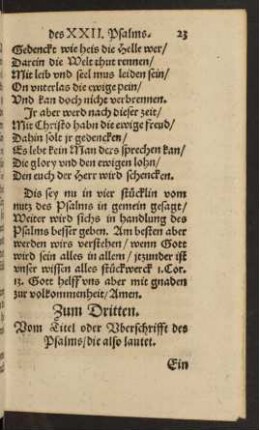 des XXII. Psalms. 23
Gedencke wie heis die Helle wer/
Darein die Welt thut rennen/
Mit leib vnd seel mus leiden sein/
On vnterlas die ewige pein/
Vnd kan doch nicht verbrennen.
Jr aber werd nach dieser zeit/
Mit Christo habn die ewige freud/
Dahin solt jr gedencken/
Es lebt kein Man ders sprechen kan/
Die glory vnd den ewigen lohn/
Den euch der Herr wird schencken.
Dis sey nu in vier stücklin vom
nutz des Psalms in gemein gesagt/
Weiter wird sichs in handlung des
Psalms besser geben. Am besten aber
werden wirs verstehen/ wenn Gott
wird sein alles in allem/ jtzunder ist
vnser wissen alles stückwerck 1. Cor.
13. Gott helff vns aber mit gnaden
zur volkommenheit/ Amen.
Zum Dritten.
Vom Titel oder Vberschrifft des
Psalms/ die also lautet.
Ein